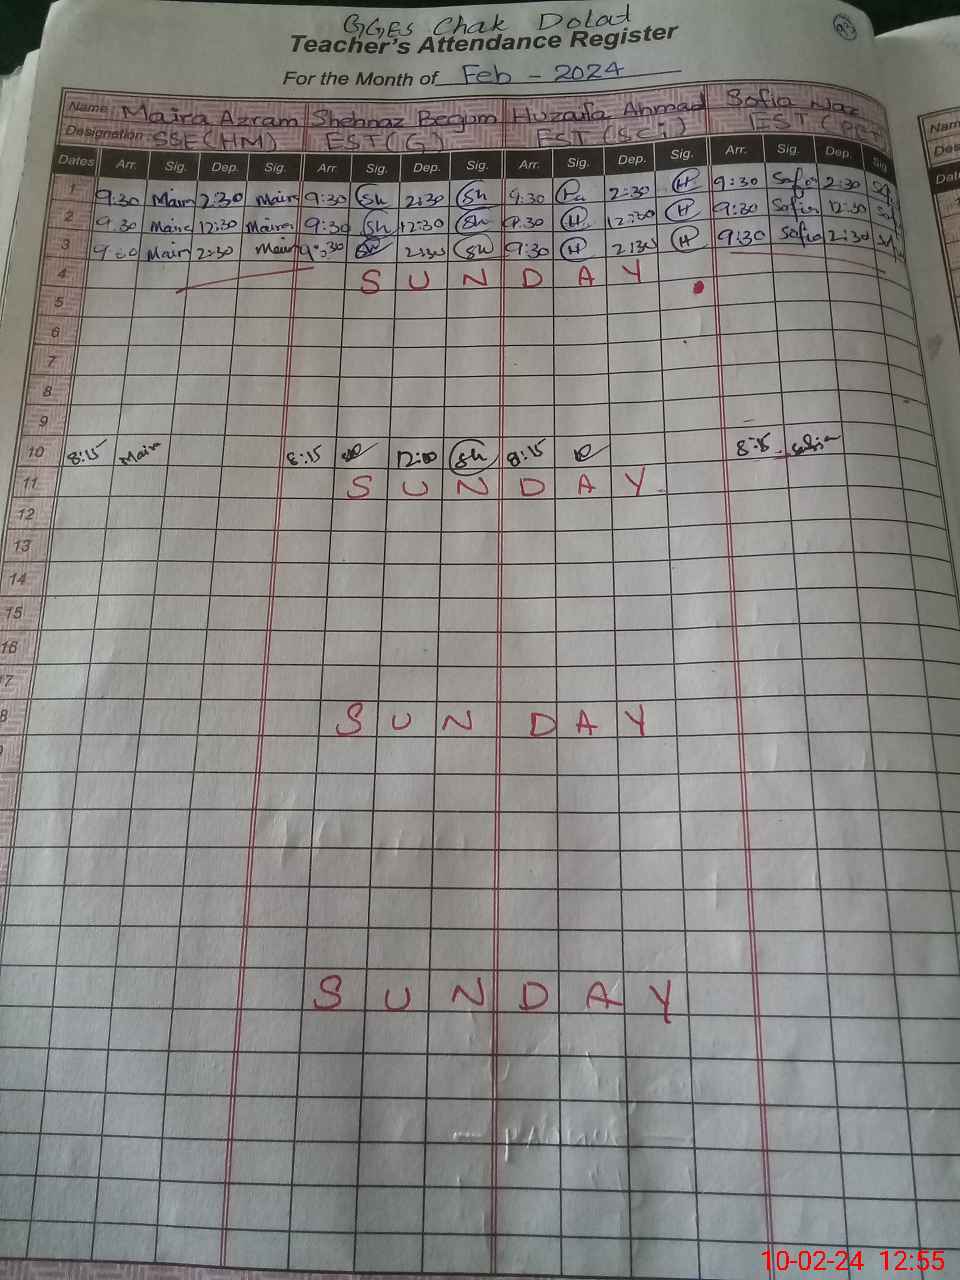 GGES Chak Dolad
23
Teacher's Attendance Register
For the Month of Feb - 2024
Name Maira Azram Shehnaz Begum Huzaila Ahmad Sofia Naz
Designation SSE(HM) EST(G) EST(Sci) EST(
Dates Arr. Sig. Dep. Sig. Arr. Sig. Dep. Sig. Arr. Sig. Dep. Sig. Arr. Sig. Dep. Sig.
1 9:30 Maira 2:30 Maira 9:30 Sh 2:30 Sh 9:30 2:30 H 9:30 Sofia 2:30
2 9:30 Maira 12:30 Maira 9:30 Sh 12:30 Sh 9:30 H 12:30 H 9:30 Sofia 12:30
3 9:30 Maira 2:30 Maira 9:30 2:30 Sh 9:30 H 2:30 H 9:30 Sofia 2:30
4 SUNDAY
5
6
7
8
9
10 8:15 Maira 8:15 12:00 Sh 8:15 8:15 Sofia
11 SUNDAY
12
13
14
15
16
7
8 SUNDAY
SUNDAY
Nam
Des
Dat
10-02-24 12:55